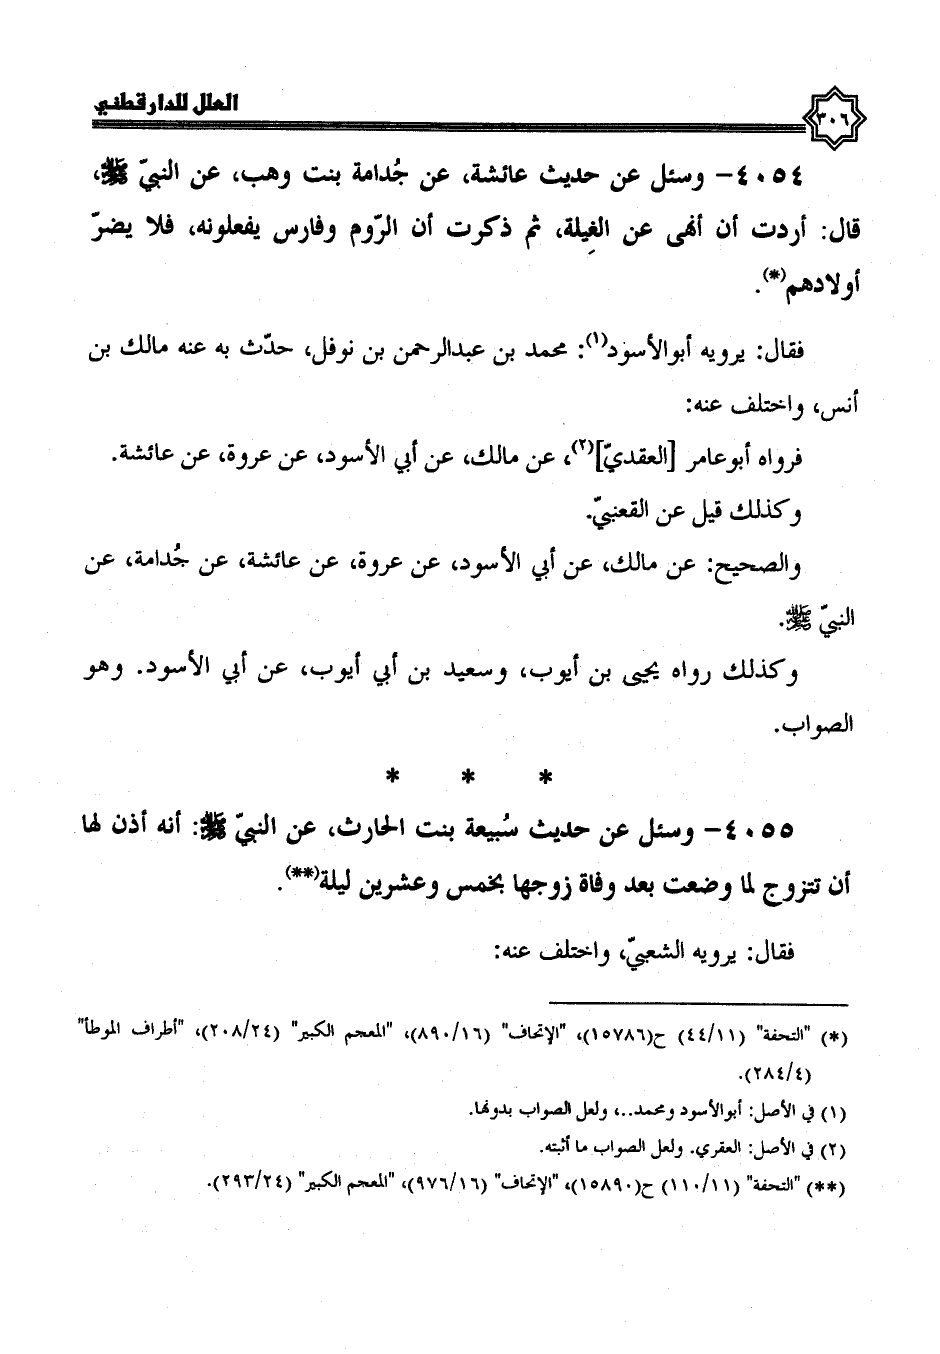 العلل للدارقطني
٣٠٦
٤٠٥٤- وسئل عن حديث عائشة، عن جُدامة بنت وهب، عن النبيّ ﷺ،
قال: أردت أن أنهى عن الغِيلة، ثم ذكرت أن الرّوم وفارس يفعلونه، فلا يضرّ
أولادهم(*).
فقال: يرويه أبوالأسود(١): محمد بن عبدالرحمن بن نوفل، حدّث به عنه مالك بن
أنس، واختلف عنه:
فرواه أبوعامر [العقديّ](٢)، عن مالك، عن أبي الأسود، عن عروة، عن عائشة.
وكذلك قيل عن القعنبيّ.
والصحيح: عن مالك، عن أبي الأسود، عن عروة، عن عائشة، عن جُدامة، عن
النبيّ ﷺ.
وكذلك رواه يحيى بن أيوب، وسعيد بن أبي أيوب، عن أبي الأسود. وهو
الصواب.
* * *
٤٠٥٥- وسئل عن حديث سُبيعة بنت الحارث، عن النبيّ ﷺ: أنه أذن لها
أن تتزوج لما وضعت بعد وفاة زوجها بخمس وعشرين ليلة(**).
فقال: يرويه الشعبيّ، واختلف عنه:
(*) "التحفة" (٤٤/١١) ح(١٥٧٨٦)، "الإتحاف" (٨٩٠/١٦)، "المعجم الكبير" (٢٠٨/٢٤)، "أطراف الموطأ"
(٢٨٤/٤).
(١) في الأصل: أبوالأسود ومحمد..، ولعل الصواب بدونها.
(٢) في الأصل: العقري. ولعل الصواب ما أثبته.
(**) "التحفة" (١١٠/١١) ح(١٥٨٩٠)، "الإتحاف" (٩٧٦/١٦)، "المعجم الكبير" (٢٩٣/٢٤).